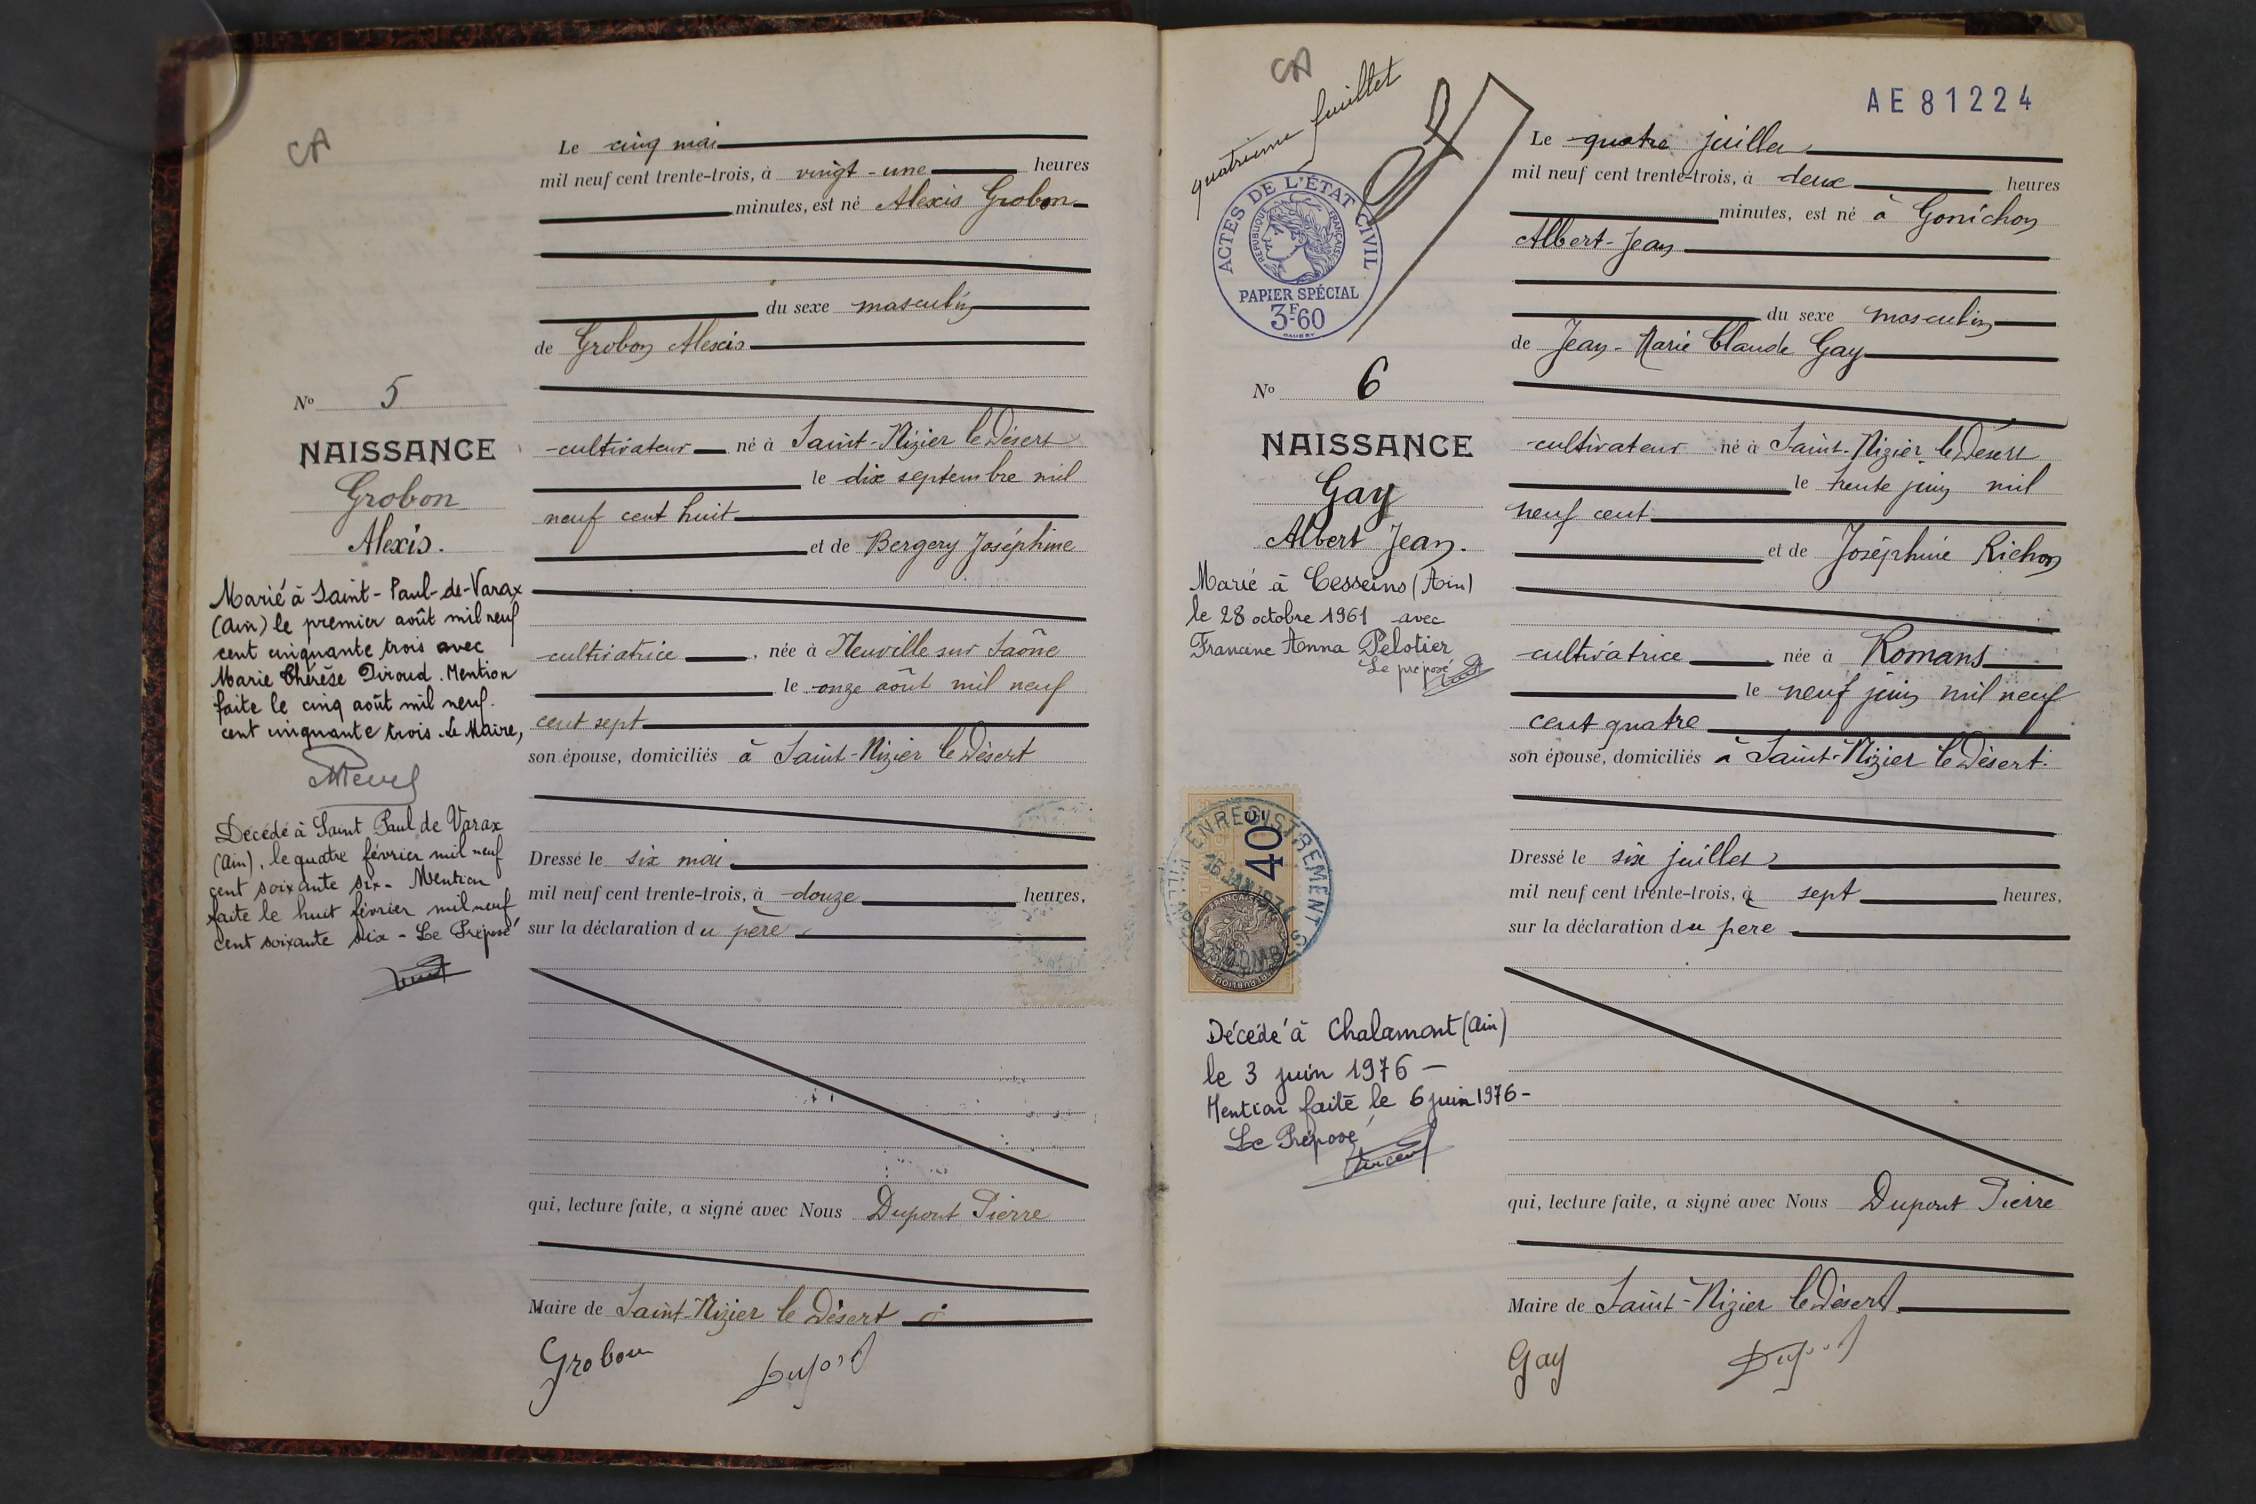 CA
Le cinq mai
mil neuf cent trente-trois, à vingt-une heures
minutes, est né Alexis Grobon
du sexe masculin
de Grobon Alexis
No 5
NAISSANCE
Grobon
Alexis.
cultivateur né à Saint-Nizier le Désert
le dix septembre mil
neuf cent huit
et de Bergery Joséphine
cultivatrice, née à Neuville sur Saône
le onze août mil neuf
cent sept
son épouse, domiciliés à Saint-Nizier le Désert
Marié à Saint-Paul-de-Varax
(Ain) le premier août mil neuf
cent cinquante trois avec
Marie Thérèse Piroud. Mention
faite le cinq août mil neuf.
cent cinquante trois. Le Maire,
Décédé à Saint Paul de Varax
(Ain), le quatre février mil neuf
cent soixante six - Mention
faite le huit février mil neuf
cent soixante six - Le Préposé
Dressé le six mai
mil neuf cent trente-trois, à douze heures,
sur la déclaration du père
qui, lecture faite, a signé avec Nous Dupont Pierre
Maire de Saint-Nizier le Désert
Grobon
CA
quatrième feuillet
AE 81224
ACTES DE L'ÉTAT CIVIL
RÉPUBLIQUE FRANÇAISE
PAPIER SPÉCIAL
3F60
Le quatre juillet
mil neuf cent trente-trois, à deux heures
minutes, est né à Gonichon
Albert-Jean
du sexe masculin
de Jean-Marie Claude Gay
No 6
NAISSANCE
Gay
Albert Jean.
cultivateur né à Saint-Nizier le Désert
le trente juin mil
neuf cent
et de Joséphine Richon
cultivatrice, née à Romans
le neuf juin mil neuf
cent quatre
son épouse, domiciliés à Saint-Nizier le Désert.
Marié à Cesseins (Ain)
le 28 octobre 1961 avec
Francine Anna Pelotier
Le préposé
ENREGISTREMENT
40
15 JAN
Décédé à Chalamont (Ain)
le 3 juin 1976 -
Mention faite le 6 juin 1976 -
Le Préposé
Dressé le six juillet
mil neuf cent trente-trois, à sept heures,
sur la déclaration du père
qui, lecture faite, a signé avec Nous Dupont Pierre
Maire de Saint-Nizier le Désert
Gay